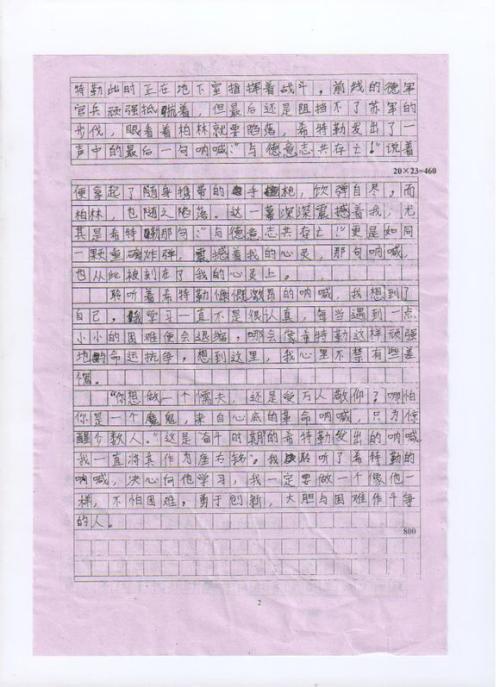 特勒此时正在地下室指挥着战斗。前线的德军
官兵顽强抵 着，但最后还是阻挡不了苏军的
步伐，眼看着柏林就要陷落，希特勒发出了一
声中的最后一句呐喊：“与德意志共存亡！”说着
20×23=460
便拿起了随身携带的手枪，饮弹自尽，而
柏林，也随之陷落。这一幕深深震撼着我，尤
其是希特勒那句：“与德意志共存亡！”更是如同
一颗重磅炸弹，震撼着我的心灵，那句呐喊，
也从此被刻在了我的心灵上。
聆听着希特勒慷慨激昂的呐喊，我想到了
自己。我学习一直不是很认真，每当遇到一点
小小的困难便会退缩，哪会像希特勒这样顽强
地与命运抗争。想到这里，我心里不禁有些羞
愧。
“你想做一个懦夫，还是受万人敬仰？哪怕
你是一个魔鬼，来自心底的革命呐喊，只为惊
醒个数人。”这是奋斗时期的希特勒发出的呐喊
我一直将其作为座右铭”。我聆听了希特勒的
呐喊，决心向他学习，我一定要做一个像他一
样，不怕困难，勇于创新，大胆与困难作斗争
的人。
800
2